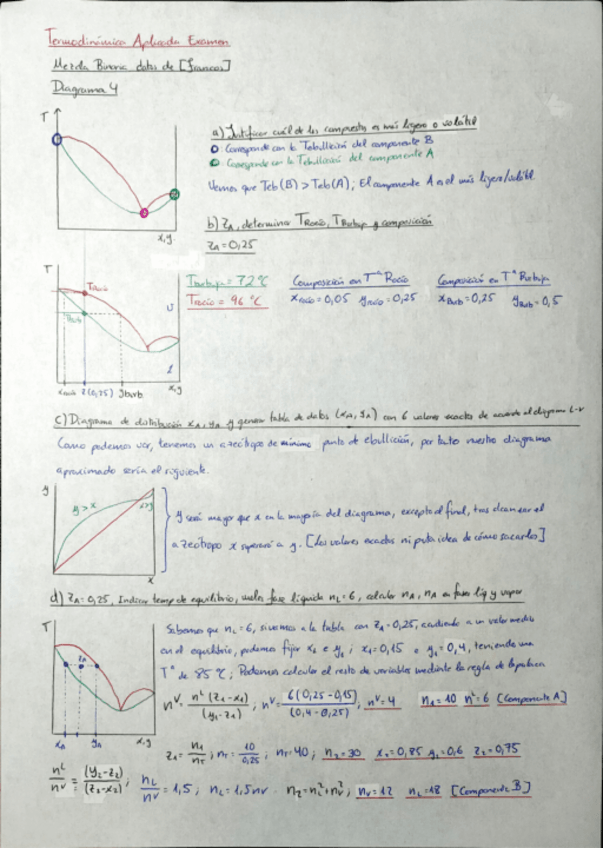 Termodinámica Aplicada Examen
Mezcla Binaria datos de [francos]
Diagrama 4
T
x,y.
a) Justificar cuál de los compuestos es más ligero o volátil
Corresponde con la Tebullición del componente B
Corresponde con la Tebullición del componente A
Vemos que Teb(B) > Teb(A); El componente A es el más ligero/volátil.
b) zA, determinar TRocío, TBurbuja y composición
zA = 0,25
T
TRocío
TBurb
v
l
xrocío z(0,25) yburb x,y
Tburbuja = 72 ºC
Trocío = 96 ºC
Composición en Tª Rocío
xrocío = 0,05 yrocío = 0,25
Composición en Tª Burbuja
xBurb = 0,25 yBurb = 0,5
c) Diagrama de distribución xA, yA y generar tabla de datos (xA, yA) con 6 valores exactos de acuerdo al diagrama L-V
Como podemos ver, tenemos un azeótropo de mínimo punto de ebullición, por tanto nuestro diagrama
aproximado sería el siguiente.
y
y > x
x>y
x
y será mayor que x en la mayoría del diagrama, excepto al final, tras alcanzar el
azeótropo x superará a y. [Los valores exactos ni puta idea de cómo sacarlos]
d) zA = 0,25, Indicar temp de equilibrio, moles fase líquida nL = 6, calcular nA, nA en fases liq y vapor
T
zA
xA yA x,y
Sabemos que nL = 6, si vamos a la tabla con zA = 0,25, acudiendo a un valor medio
en el equilibrio, podemos fijar x1 e y1; x1 = 0,15 e y1 = 0,4, teniendo una
Tª de 85 ºC; Podemos calcular el resto de variables mediante la regla de la palanca
nV = nL (z1-x1) / (y1-z1); nV = 6(0,25-0,15) / (0,4-0,25); nV = 4 n1 = 10 nL = 6 [Componente A]
z1 = n1/nT; nT = 10/0,25; nT = 40; n2 = 30 x2 = 0,85 y2 = 0,6 z2 = 0,75
nL/nV = (y2-z2)/(z2-x2); nL/nV = 1,5; nL = 1,5nV · n2 = nL2 + nV2; nV = 12 nL = 18 [Componente B]